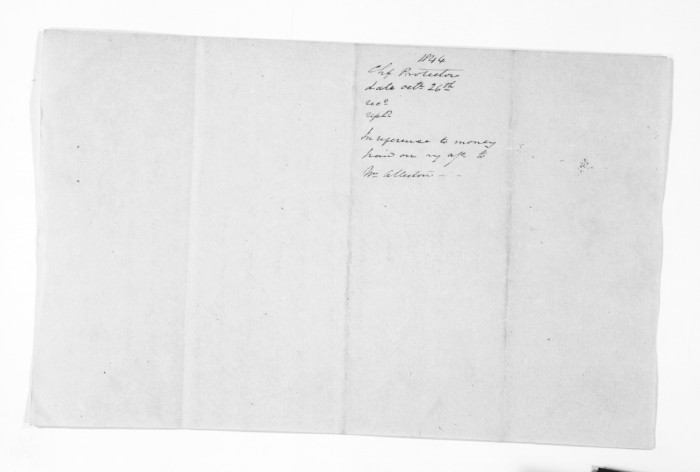 1844
Chf Protector
date Octr 26th
recd
repd
In reference to money
paid on my a/c to
Wm